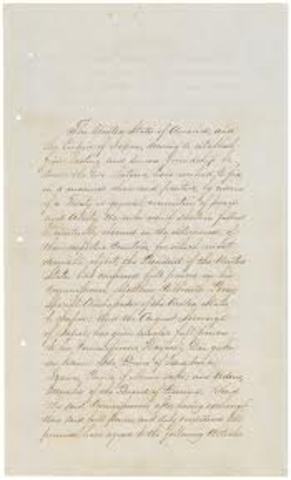 The United States of America, and
the Empire of Japan, desiring to establish
firm, lasting and sincere friendship be-
tween the two Nations, have resolved to fix
in a manner clear and positive, by means
of a Treaty or general convention of peace
and amity, the rules which shall in future
be mutually observed in the intercourse of
their respective Countries; for which most
desirable object, the President of the United
States has conferred full powers on his
Commissioner, Matthew Calbraith Perry,
Special Ambassador of the United States
to Japan: And the August Sovereign
of Japan, has given similar full powers
to his Commissioners,
Prince of
Prince of and
Member of the Board of Revenue. And
the said Commissioners after having exchanged
their said full powers, and duly considered the
premises, have agreed to the following Articles